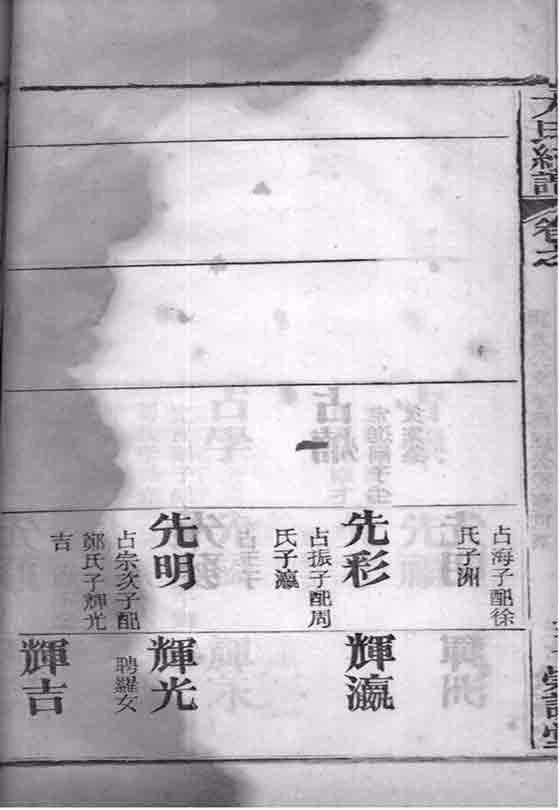 卷之
占海子配徐
氏子洲
先彩
占振子配周
氏子瀛
先明
占宗次子配
鄭氏子輝光
吉
輝瀛
輝光
聘羅女
輝吉